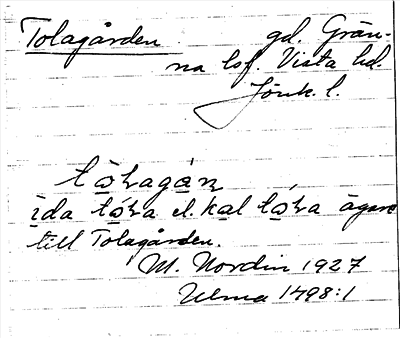 Tolagården gd. Grän-
na lsf. Vista hd.
Jönk. l.
tò̱ɫagá̱n
ìda tó̱ɫa el. kal tó̱ɫa ägare
till Tolagården.
M. Nordin 1927
Ulma 1498:1